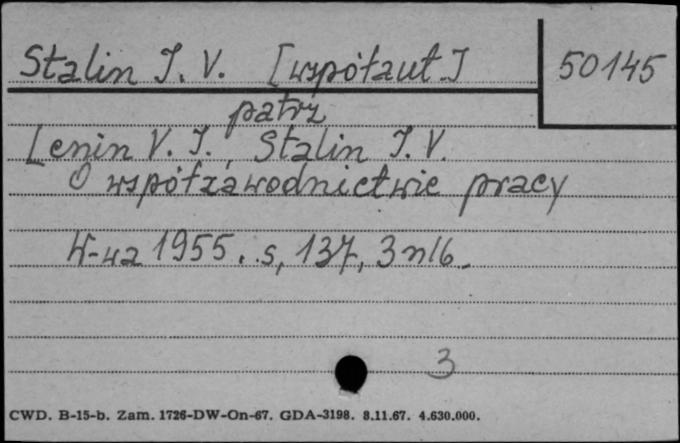 Stalin J. V. [współaut.]
50145
patrz
Lenin V. I., Stalin J. V.
O współzawodnictwie pracy
W-wa 1955. s, 137, 3 nlb.
3
CWD. B-15-b. Zam. 1726-DW-On-67. GDA-3198. 8.11.67. 4.630.000.